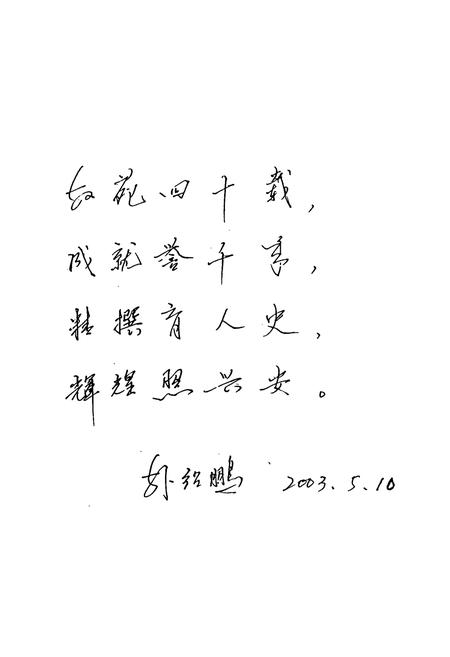 教苑四十载,
成就誉千家,
精撰育人史,
辉煌照兴安。
孙绍鹏 2003.5.10